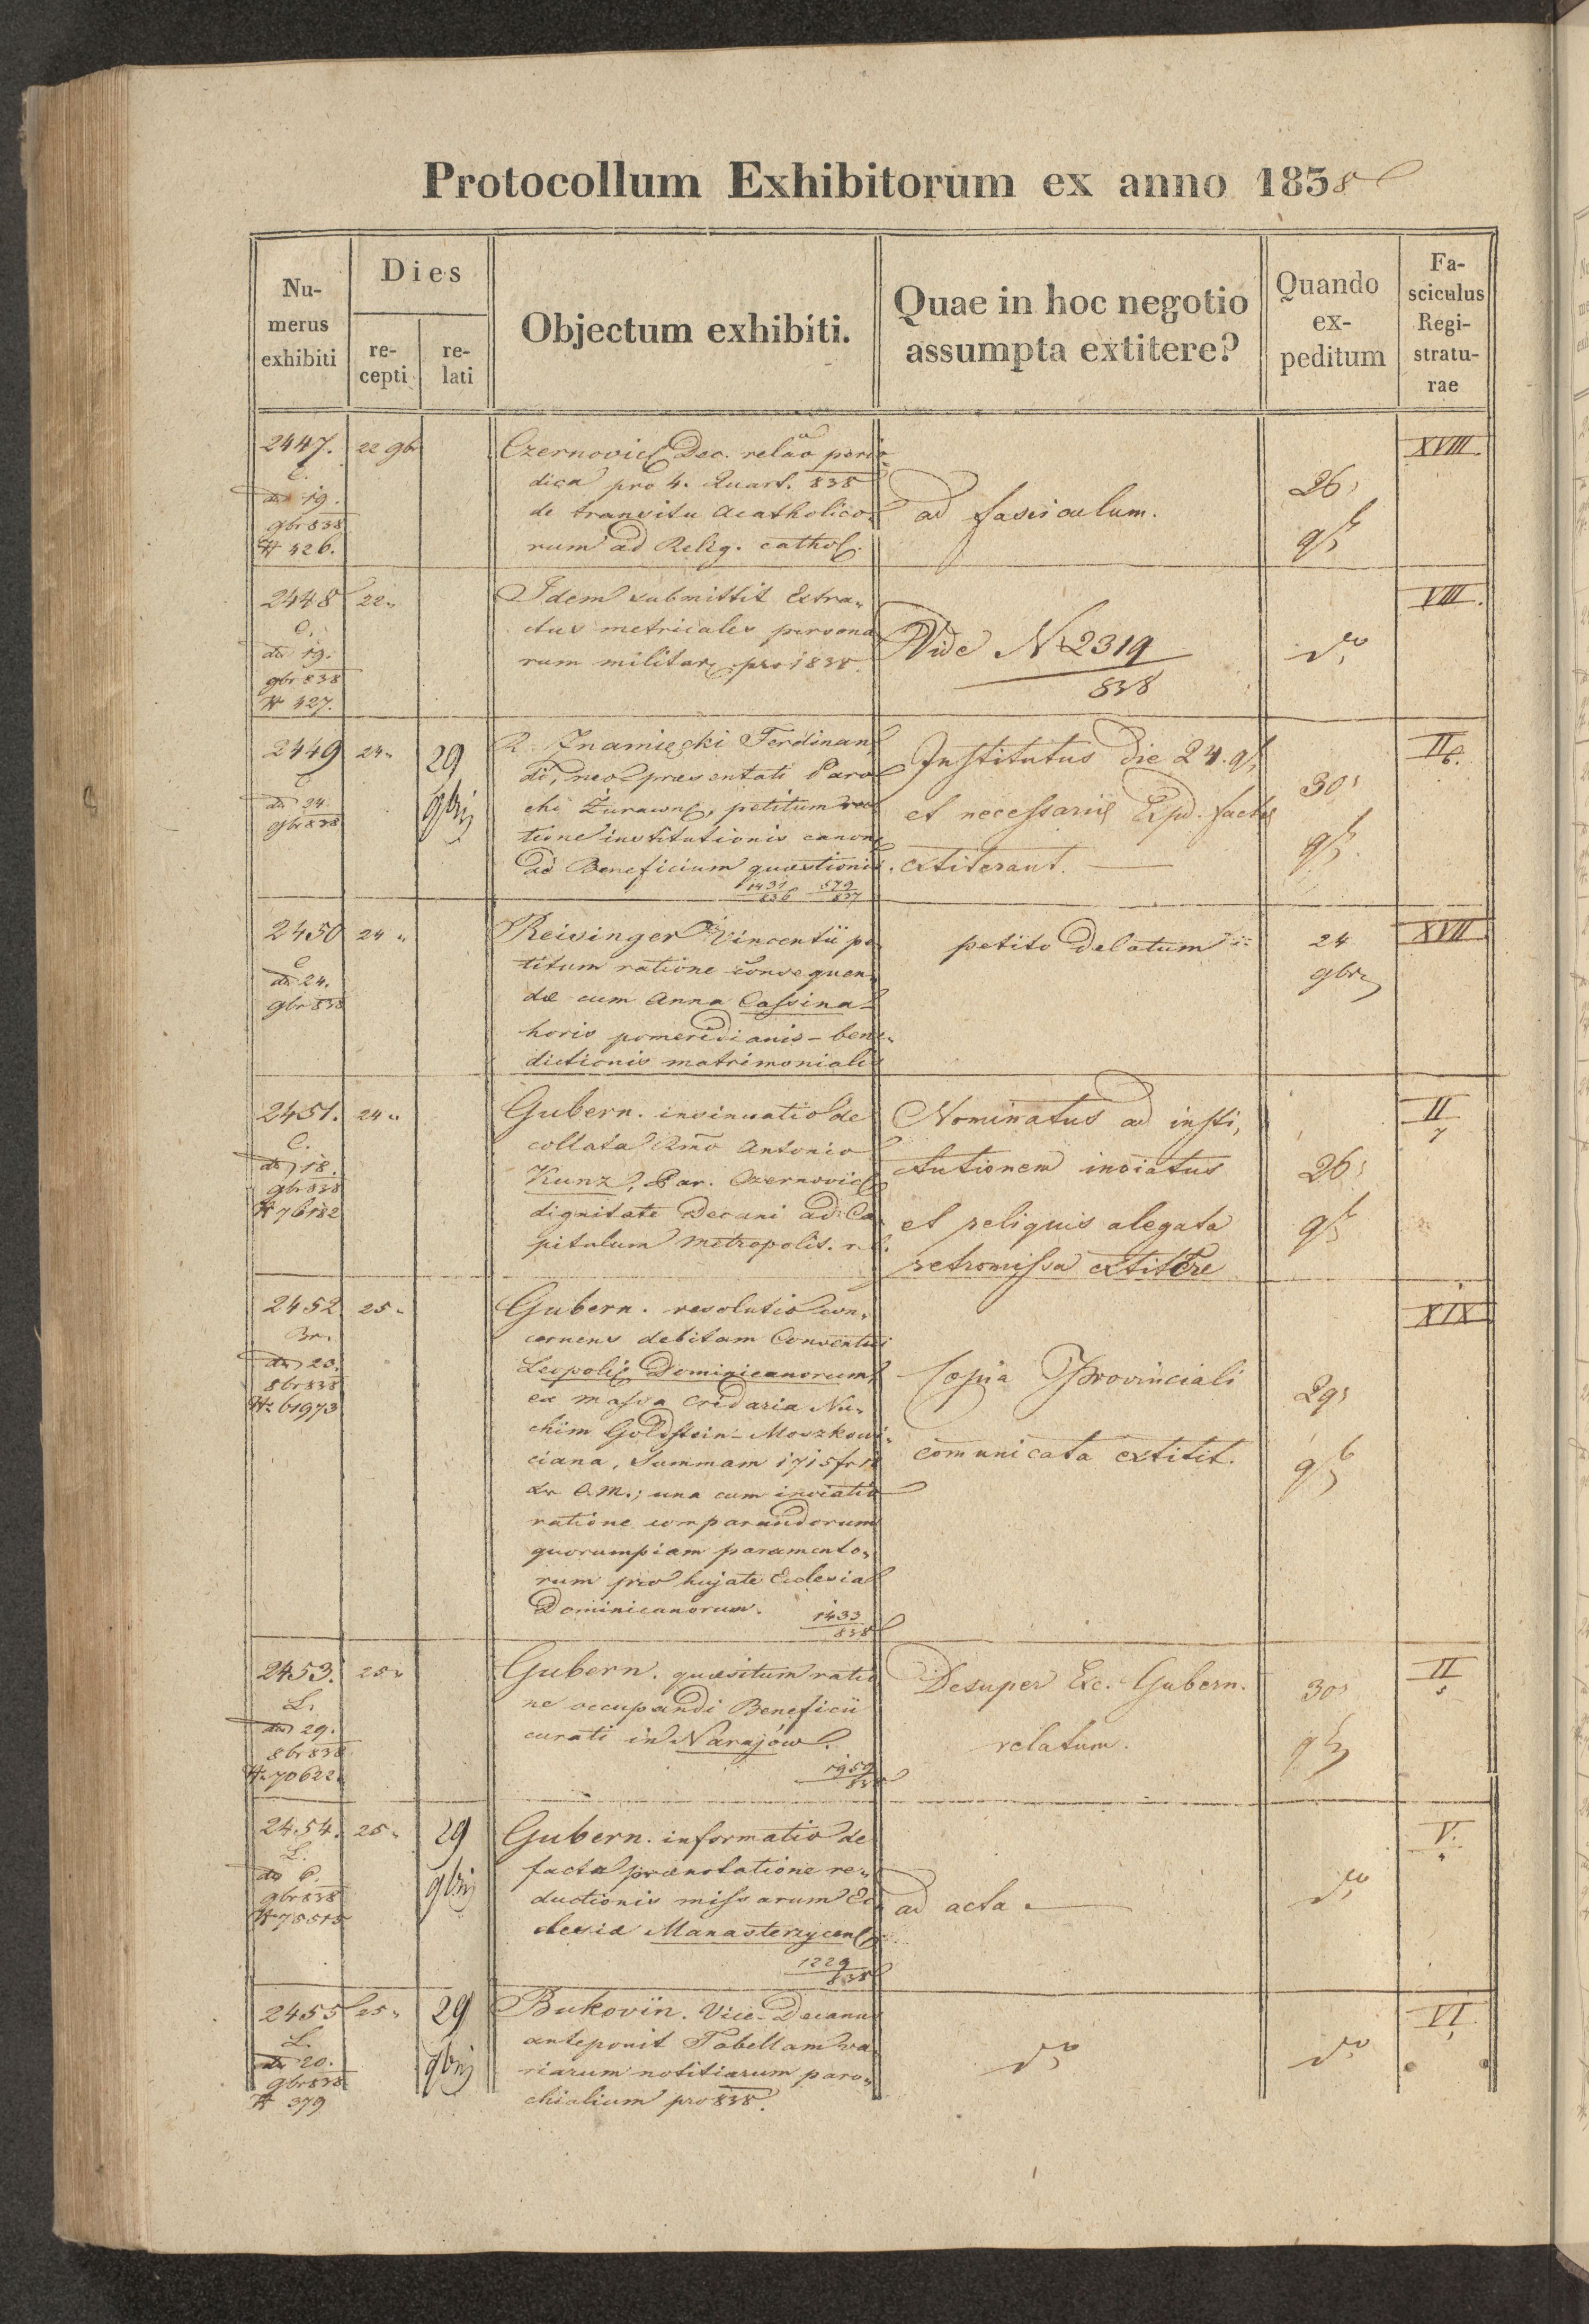 Protocollum Exhibitorum ex anno 1838
Numerus exhibiti
Dies
recepti
relati
Objectum exhibiti.
Quae in hoc negotio assumpta extitere?
Quando expeditum
Fasciculus Registraturae
2447.
C.
dto 19.
9br 838
N 426.
22 9br
Czernovic Dec. relao perio
dica pro 4. Quart. 838
de transitu Acatholico„
rum ad Relig. cathol.
ad fasciculum.
26
9br
XVIII.
2448
C.
dto 19.
9br 838
N 427.
22„
Idem submittit Extra„
ctus metricales persona
rum militar pro 1838.
Vide N 2319
838
dto
VIII.
2449
C
dto 24.
9br 838
24„
29
9bris
R. Znamięcki Ferdinan
di, neo praesentati Paro
chi Żurawn, petitum ra
tione institutionis canon
ad Beneficium quaestionis.
1431
836
579
837
Institutus die 24. 9br
et necessariis Exped. factis
extiterant.
30
9br
II
6.
2450
C
dto 24.
9br 838
24„
Reisinger Vincentii pe
titum ratione consequen„
dae cum Anna Cassina
horis pomeridianis – bene„
dictionis matrimonialis
petito delatum
24
9bris
XVII
2451.
C.
dto 18.
9br 838
N 76182
24„
Gubern. insinuatio de
collata Rmo Antonio
Kunz, Par. Czernovic
dignitate Decani ad Ca
pitulum Metropolit. r. l.
Nominatus ad insti,
tutionem inviatus
et reliquis alegata
retromissa extitere
26
9br
II
7
2452
Br.
dto 20.
8br 838
N 61973
25„
Gubern. resolutio con„
cernens debitam Conventui
Leopoli Dominicanorum
ex massa cridaria Nu„
chim Goldstein – Moszkowi„
ciana, Summam 1715 fr 18
xr C.M.; una cum inviatio
ratione comparandorum
quorumpiam paramento„
rum pro hujate Ecclesia
Dominicanorum.
1433
838
Copia Provinciali
comunicata extitit.
29
9br
XIX
2453.
L.
dto 29.
8br 838
N 70622
25„
Gubern. quaesitum ratio
ne occupandi Beneficii
curati in Narajów.
1959
838
Desuper Exc. Gubern.
relatum.
30
9br
II
5
2454.
L.
dto 6.
9br 838
N 75515
25„
29
9bris
Gubern. informatio de
facta praenotatione re„
ductionis missarum Ec
clesiae Manasterzycen
1229
838
ad acta.
dto
V.
4
2455
L.
dto 20.
9br 838
N 379
25„
29
9bris
Bukovin. Vice-Decanus
anteponit Tabellam va
riarum notitiarum paro„
chialium pro 838.
dto
dto
VI
1